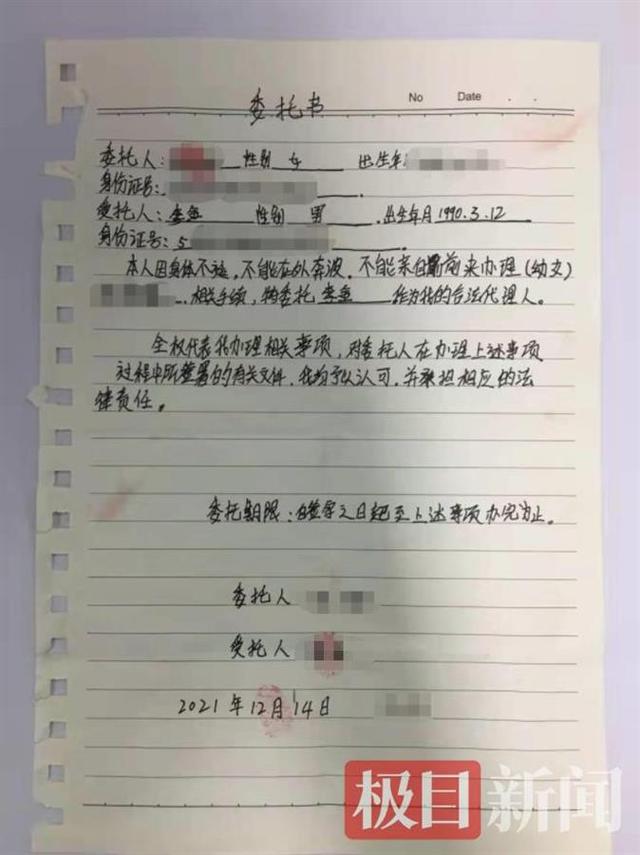 No Date . .
委托书
委托人: 性别 女 出生年
身份证号:
受托人: 李 性别 男 出生年月 1990.3.12
身份证号: 5
本人因身体不适,不能在外奔波,不能亲自前来办理(幼女)
相关手续,特委托 李 作为我的合法代理人。
全权代表我办理相关事项,对委托人在办理上述事项
过程中所签署的有关文件,我均予以认可,并承担相应的法
律责任。
委托期限:自签字之日起至上述事项办完为止。
委托人
受托人
2021年12月14日
极目新闻